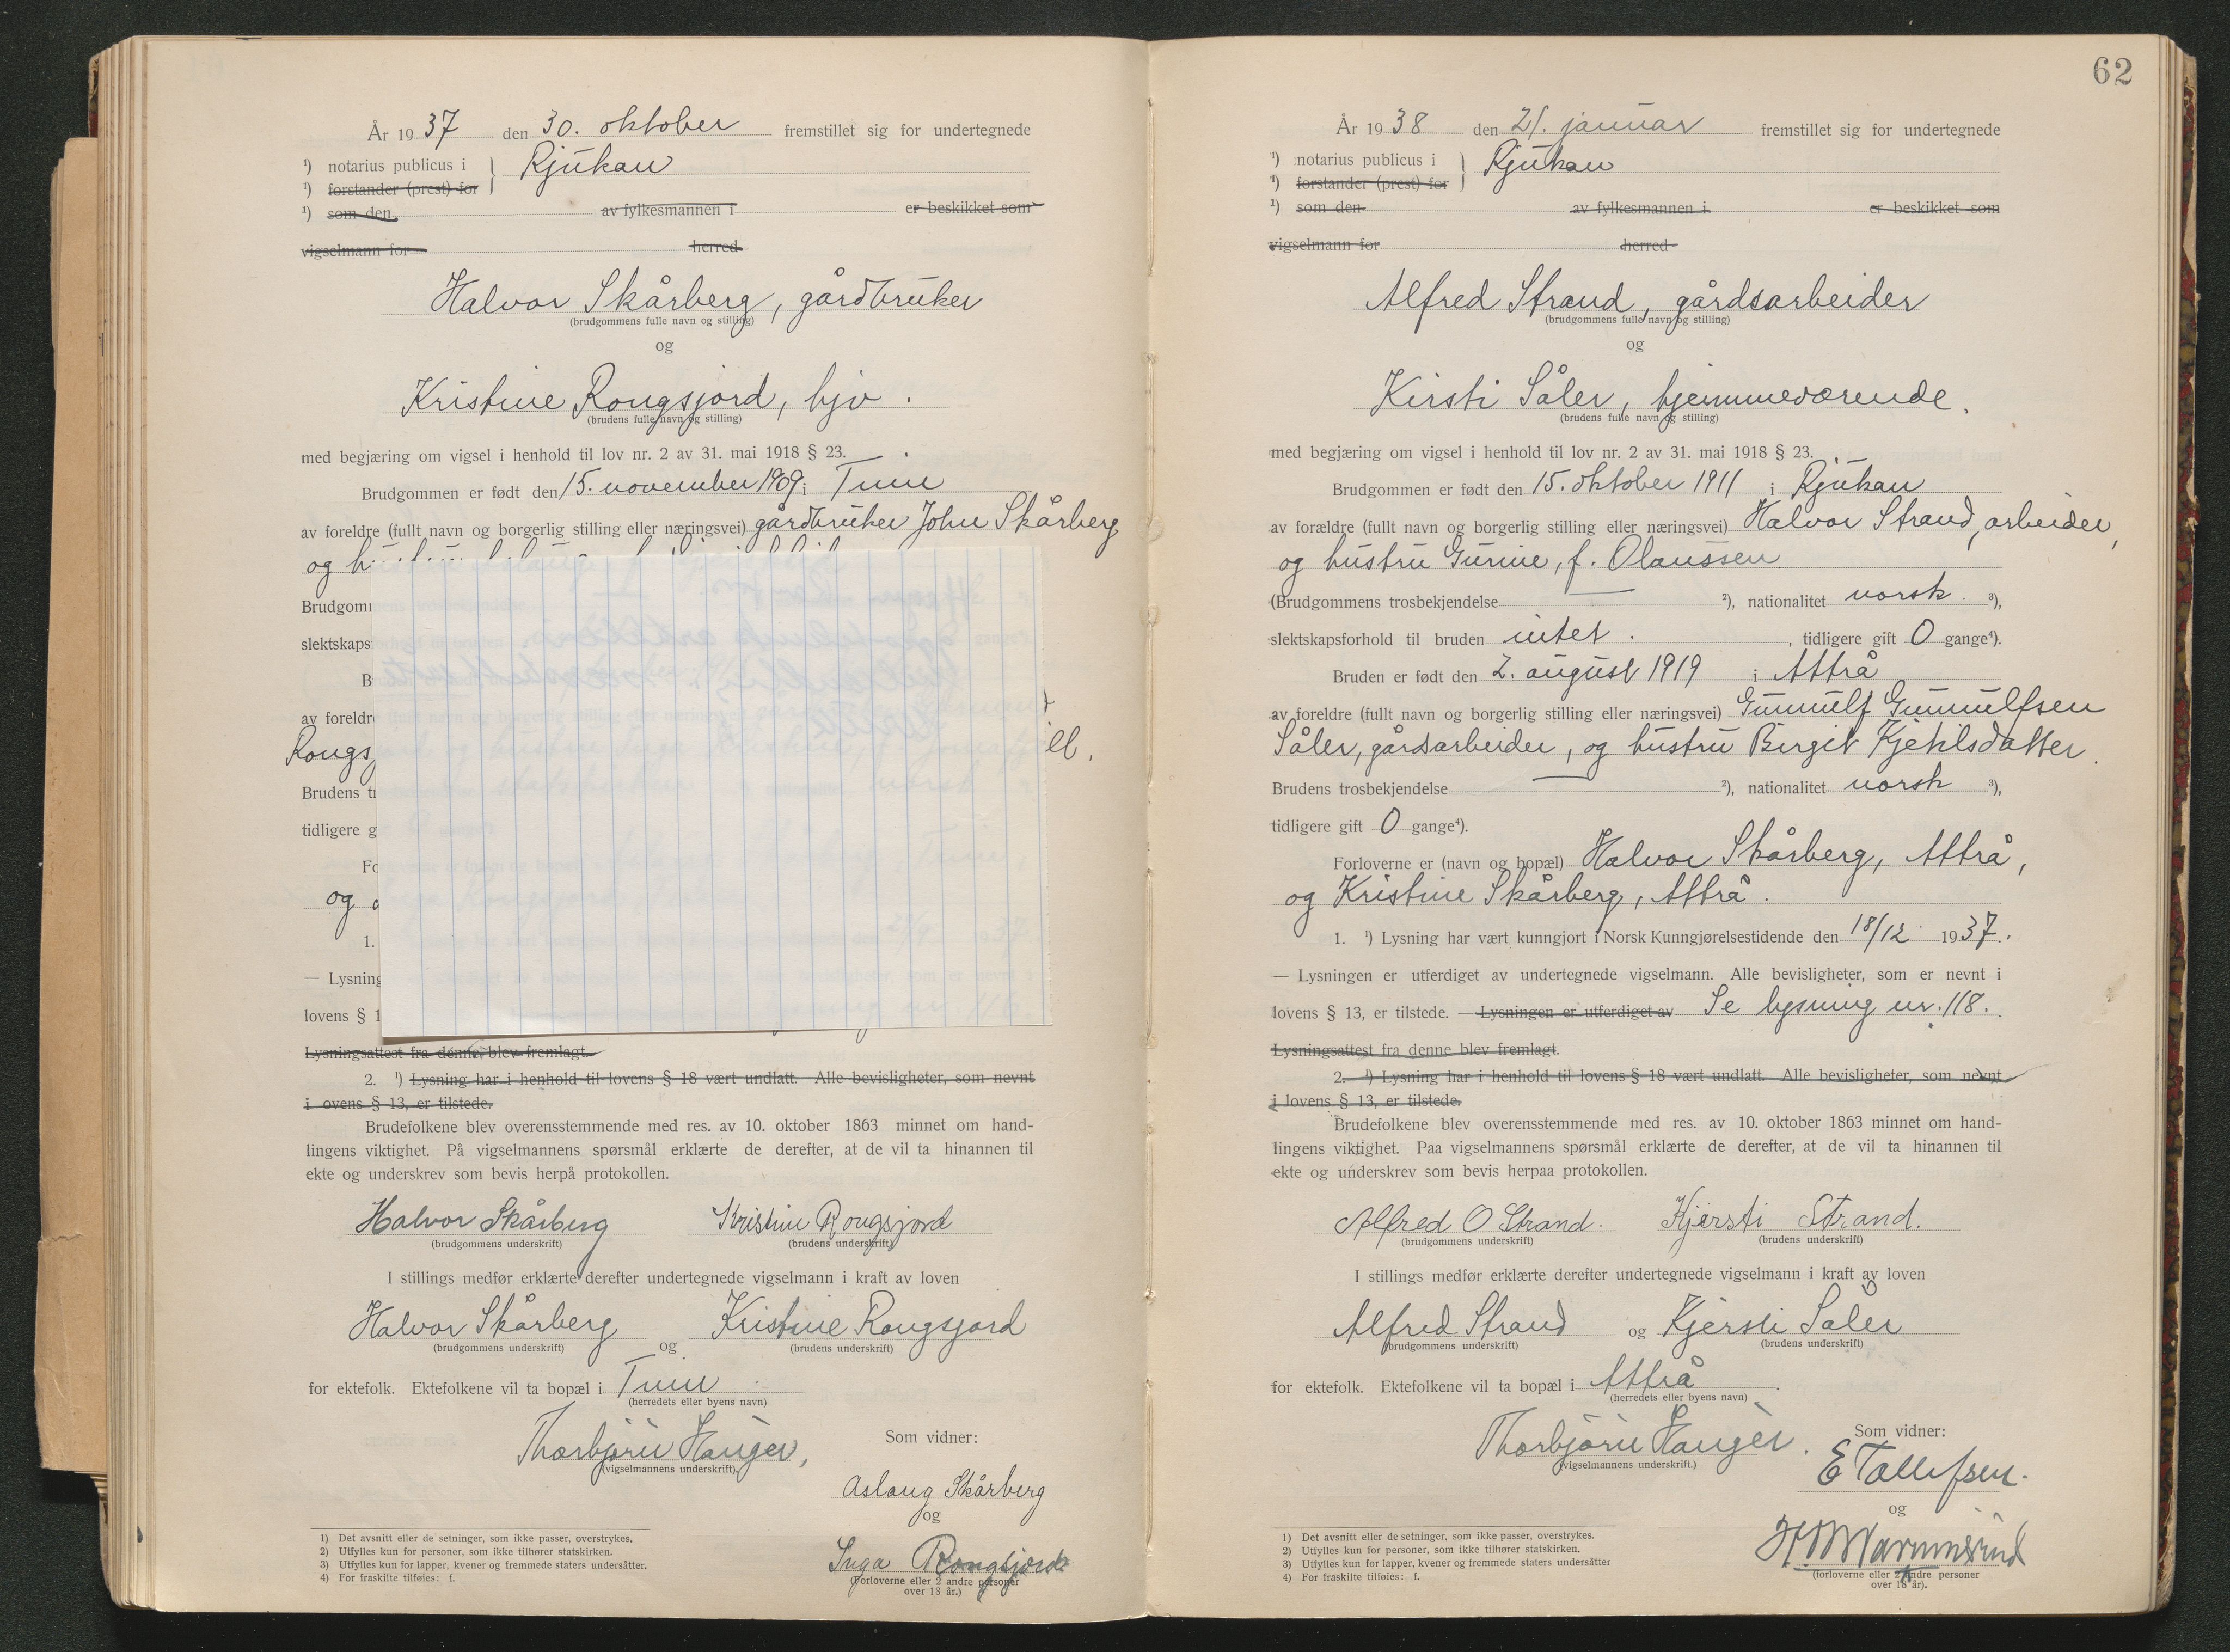 År 1937 den 30. oktober fremstillet sig for undertegnede
¹) notarius publicus i } Rjukan
¹) forstander (prest) for
¹) som den av fylkesmannen i er beskikket som
vigselmann for herred
Halvor Skårberg, gårdbruker
(brudgommens fulle navn og stilling)
og
Kristine Rongsjord, hjv.
(brudens fulle navn og stilling)
med begjæring om vigsel i henhold til lov nr. 2 av 31. mai 1918 § 23.
Brudgommen er født den 15. november 1909 i Tinn
av foreldre (fullt navn og borgerlig stilling eller næringsvei) gårdbruker John Skårberg
og
Brudgomm
slektskaps
B
av foreldr
Rongsj ell.
Brudens t
tidligere g
Fo
og
1.
— Lysning
lovens § 1
Lysningsattest fra denne blev fremlagt.
2. ¹) Lysning har i henhold til lovens § 18 vært undlatt. Alle bevisligheter, som nevnt
i ovens § 13, er tilstede.
Brudefolkene blev overensstemmende med res. av 10. oktober 1863 minnet om hand-
lingens viktighet. På vigselmannens spørsmål erklærte de derefter, at de vil ta hinannen til
ekte og underskrev som bevis herpå protokollen.
Halvor Skårberg Kristine Rongsjord
(brudgommens underskrift) (brudens underskrift)
I stillings medfør erklærte derefter undertegnede vigselmann i kraft av loven
Halvor Skårberg og Kristine Rongsjord
(brudgommens underskrift) (brudens underskrift)
for ektefolk. Ektefolkene vil ta bopæl i Tinn
(herredets eller byens navn)
Thorbjørn Hauger,
(vigselmannens underskrift)
Som vidner:
Aslaug Skårberg
og
Inga Rongsjorde
(Forloverne eller 2 andre personer
over 18 år.)
1) Det avsnitt eller de setninger, som ikke passer, overstrykes.
2) Utfylles kun for personer, som ikke tilhører statskirken.
3) Utfylles kun for lapper, kvener og fremmede staters undersåtter.
4) For fraskilte tilføies: f.
62
År 1938 den 21. januar fremstillet sig for undertegnede
¹) notarius publicus i } Rjukan
¹) forstander (prest) for
¹) som den av fylkesmannen i er beskikket som
vigselmann for herred
Alfred Strand, gårdsarbeider
(brudgommens fulle navn og stilling)
og
Kirsti Såler, hjemmeværende.
(brudens fulle navn og stilling)
med begjæring om vigsel i henhold til lov nr. 2 av 31. mai 1918 § 23.
Brudgommen er født den 15. oktober 1911 i Rjukan
av forældre (fullt navn og borgerlig stilling eller næringsvei) Halvor Strand, arbeider,
og hustru Gurine, f. Olaussen.
(Brudgommens trosbekjendelse — ²), nationalitet norsk. ³),
slektskapsforhold til bruden intet. , tidligere gift 0 gange⁴).
Bruden er født den 2. august 1919 i Attrå
av foreldre (fullt navn og borgerlig stilling eller næringsvei) Gunnulf Gunnulfsen
Såler, gårdsarbeider, og hustru Birgit Kjetilsdatter.
Brudens trosbekjendelse — ²), nationalitet norsk ³),
tidligere gift 0 gange⁴).
Forloverne er (navn og bopæl) Halvor Skårberg, Attrå,
og Kristine Skårberg, Attrå.
1. ¹) Lysning har vært kunngjort i Norsk Kunngjørelsestidende den 18/12 1937.
— Lysningen er utferdiget av undertegnede vigselmann. Alle bevisligheter, som er nevnt i
lovens § 13, er tilstede. — Lysningen er utferdiget av Se lysning nr. 118.
Lysningsattest fra denne blev fremlagt.
2. ¹) Lysning har i henhold til lovens § 18 vært undlatt. Alle bevisligheter, som nevnt
i lovens § 13, er tilstede.
Brudefolkene blev overensstemmende med res. av 10. oktober 1863 minnet om hand-
lingens viktighet. Paa vigselmannens spørsmål erklærte de derefter, at de vil ta hinannen til
ekte og underskrev som bevis herpaa protokollen.
Alfred O Strand. Kjersti Strand.
(brudgommens underskrift) (brudens underskrift)
I stillings medfør erklærte derefter undertegnede vigselmann i kraft av loven
Alfred Strand og Kjersti Såler
(brudgommens underskrift) (brudens underskrift)
for ektefolk. Ektefolkene vil ta bopæl i Attrå
(herredets eller byens navn)
Thorbjørn Hauger.
(vigselmannens underskrift.)
Som vidner:
E Tollefsen.
og
(forloverne eller 2 andre personer
over 18 år).
1) Det avsnitt eller de setninger, som ikke passer, overstrykes.
2) Utfylles kun for personer, som ikke tilhører statskirken.
3) Utfylles kun for lapper, kvener og fremmede staters undersåtter
4) For fraskilte tilføies: f.